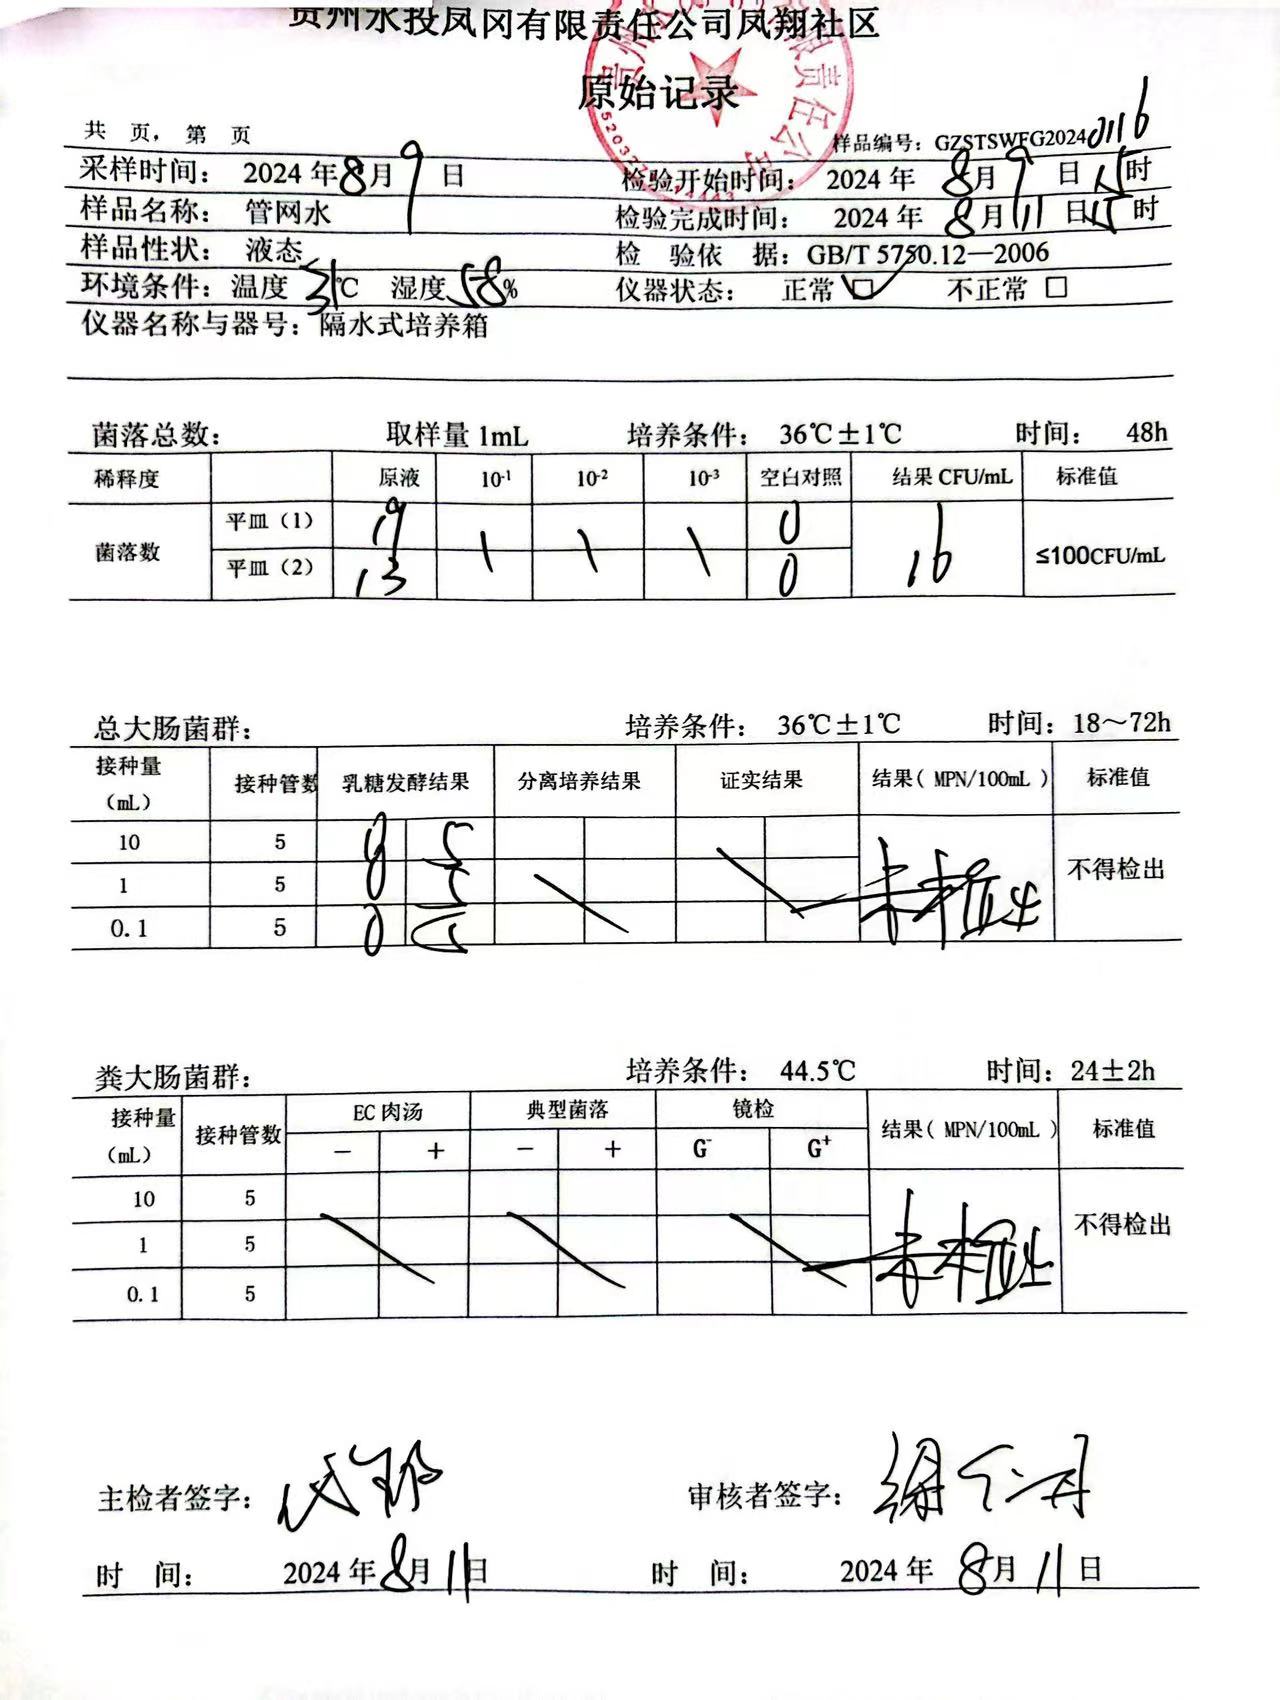 贵州水投凤冈有限责任公司凤翔社区
原始记录
共 页，第 页
样品编号：GZSTSWFG20240116
采样时间： 2024年8月9日 检验开始时间： 2024年 8月9日15时
样品名称： 管网水 检验完成时间： 2024年 8月11日15时
样品性状： 液态 检 验依 据：GB/T 5750.12—2006
环境条件：温度 31℃ 湿度 58% 仪器状态： 正常 ☑ 不正常 □
仪器名称与器号：隔水式培养箱
菌落总数： 取样量 1mL 培养条件： 36℃±1℃ 时间： 48h
稀释度 原液 10-1 10-2 10-3 空白对照 结果 CFU/mL 标准值
菌落数 平皿（1） 19 \ \ \ 0 16 ≤100CFU/mL
平皿（2） 13 0
总大肠菌群： 培养条件： 36℃±1℃ 时间：18～72h
接种量（mL） 接种管数 乳糖发酵结果 分离培养结果 证实结果 结果（MPN/100mL） 标准值
10 5 0 5
1 5 0 5 未检出 不得检出
0.1 5 0 5
粪大肠菌群： 培养条件： 44.5℃ 时间：24±2h
接种量（mL） 接种管数 EC肉汤 典型菌落 镜检 结果（MPN/100mL） 标准值
－ ＋ － ＋ G- G+
10 5
1 5 未检出 不得检出
0.1 5
主检者签字： 审核者签字：
时 间： 2024年8月11日 时 间： 2024年 8月11日